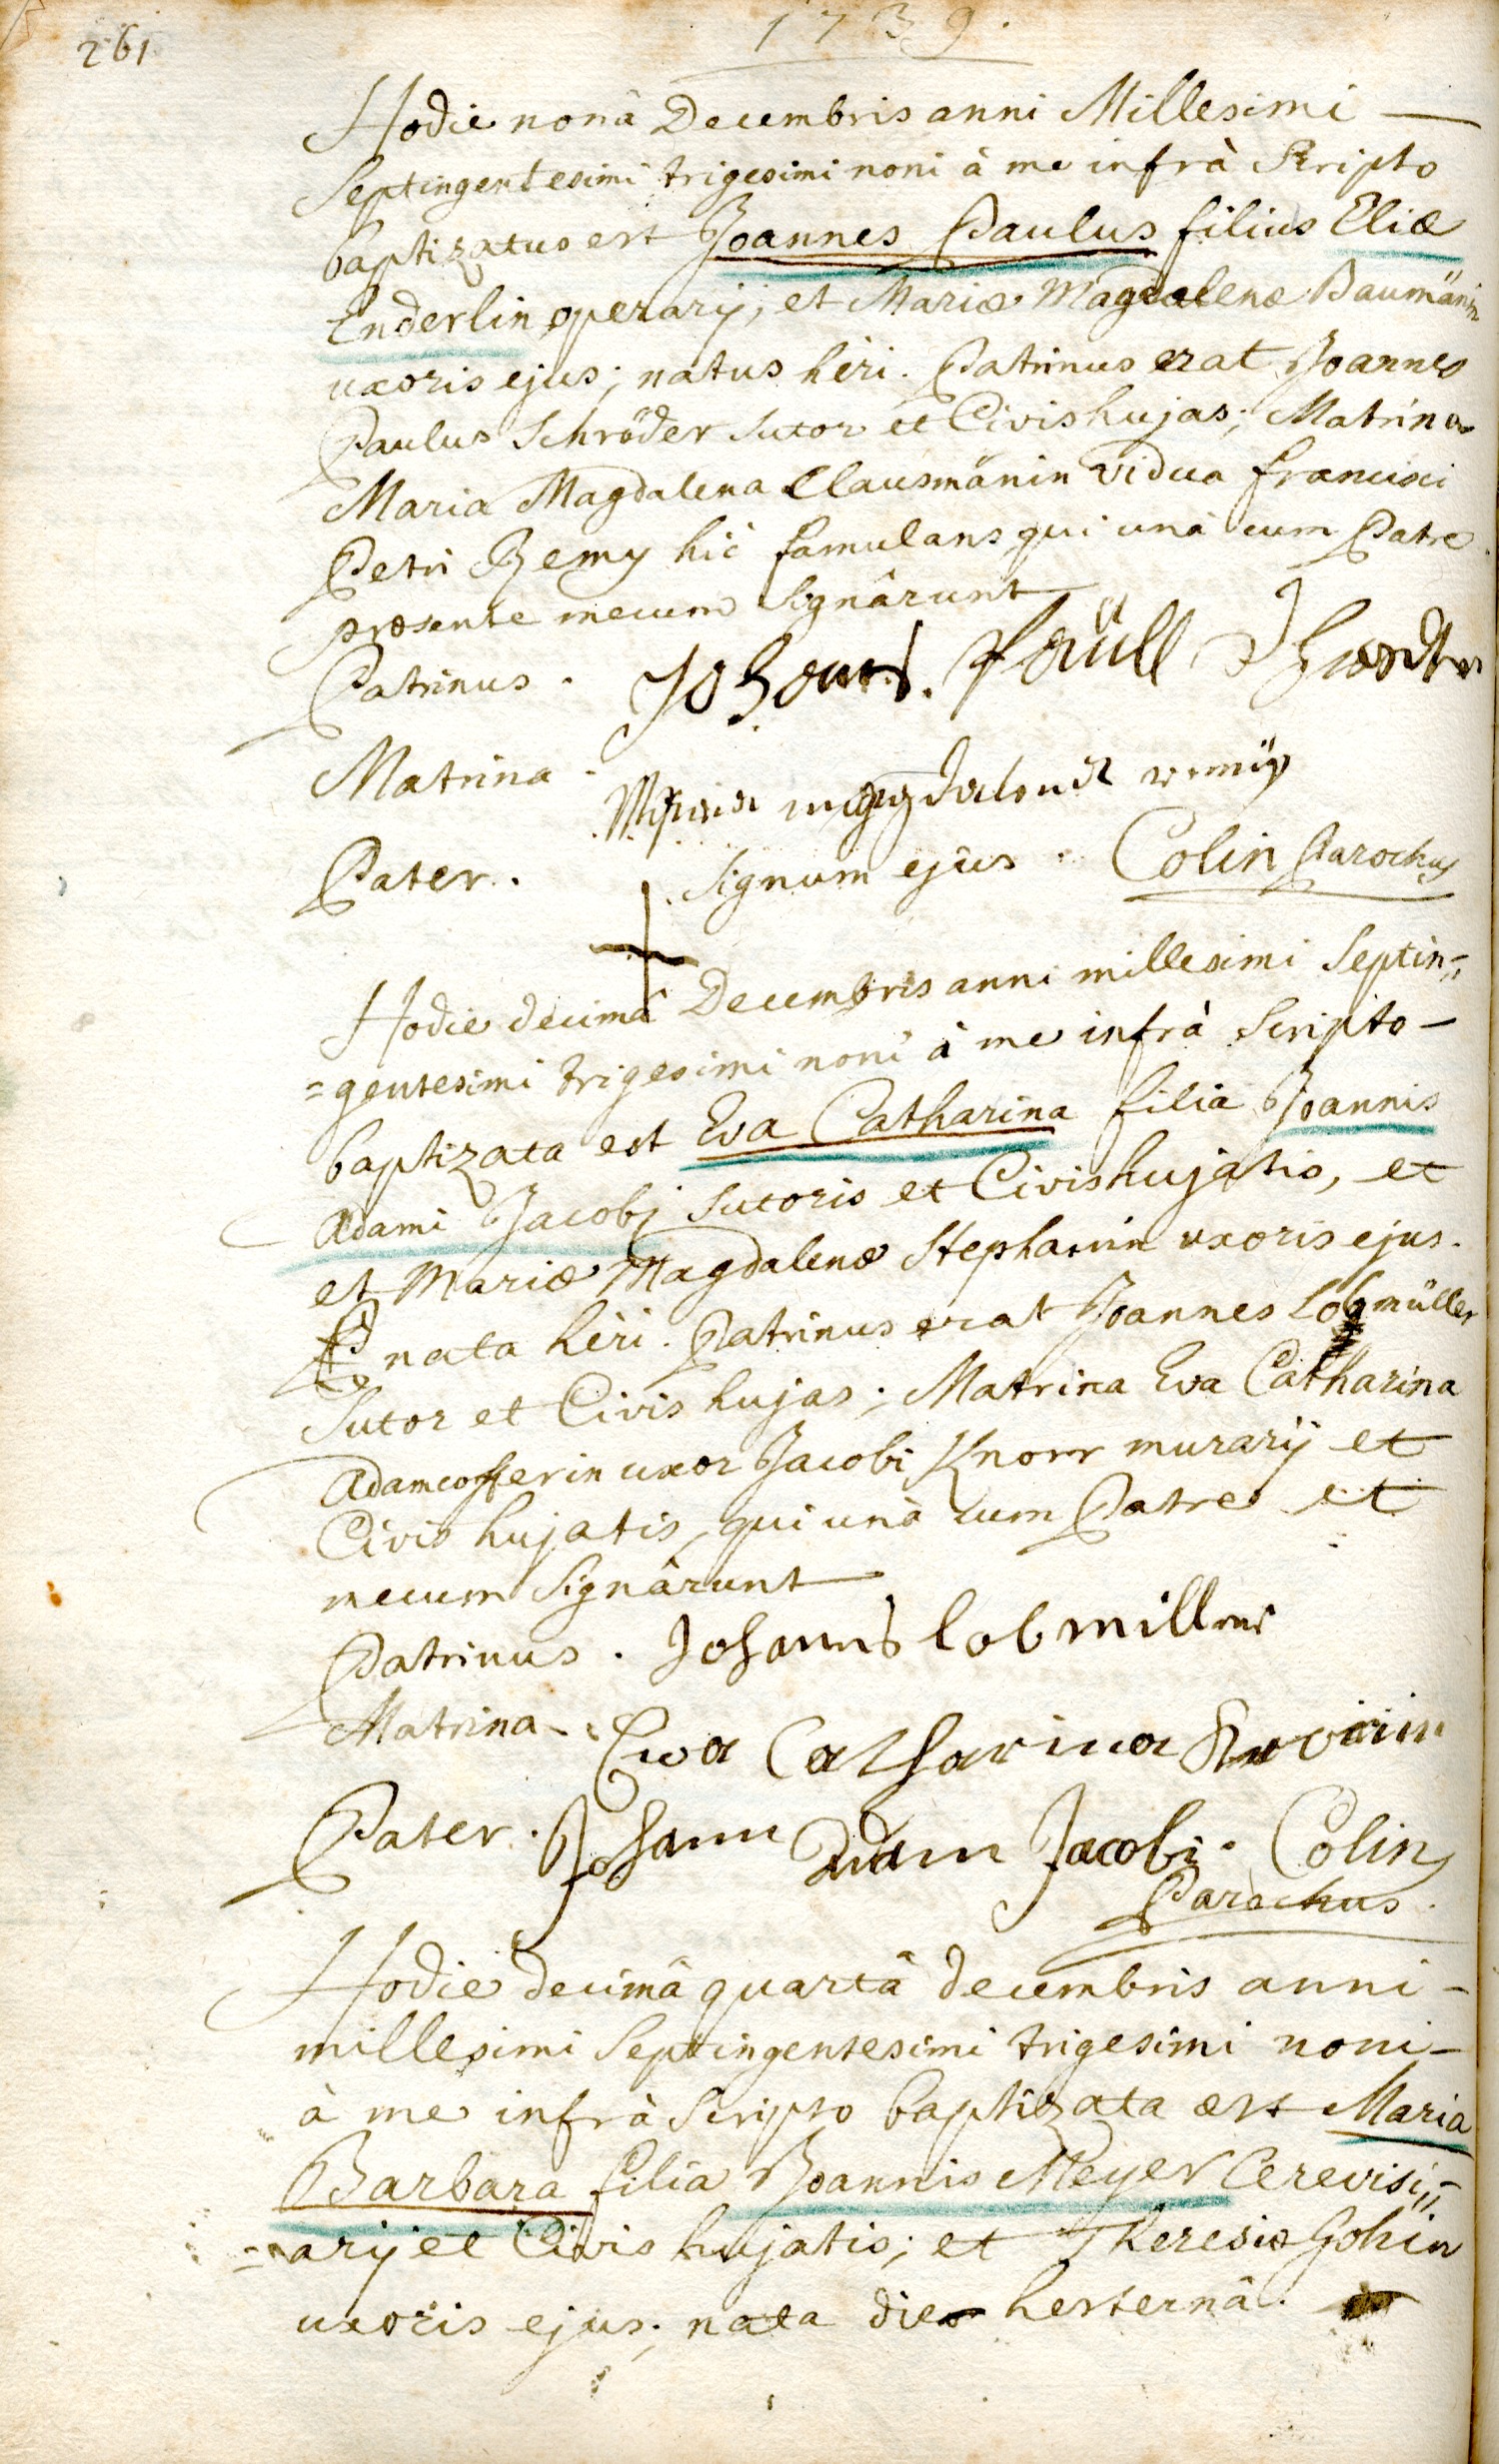 261
1739.
Hodie nonâ Decembris anni Millesimi —
Septingentesimi trigesimi noni à me infrà Scripto
baptizatus est Joannes Paulus filius Eliæ
Enderlin operarij, et Mariæ Magdalenæ Baumänin
uxoris ejus; natus heri. Patrinus erat Joannes
Paulus Schröder Sutor et Civis hujas; Matrina
Maria Magdalena Clausmänin vidua francisci
Petri Remy hic famulans qui unà cum Patre
præsente mecum Signârunt
Patrinus. Johanes. Paüll
Matrina. Maria magdalena remÿ
Pater. Signum ejus. Colin Parochus
Hodie decimâ Decembris anni millesimi Septin=
=gentesimi trigesimi noni à me infrà Scripto —
baptizata est Eva Catharina filia Joannis
Adami Jacobj Sutoris et Civis hujatis, et
et Mariæ Magdalenæ Stephanin uxoris ejus.
nata heri. Patrinus erat Joannes Lobmüller
Sutor et Civis hujas; Matrina Eva Catharina
Adamcofferin uxor Jacobi Knorr murarij et
Civis hujatis, qui unà cum Patre et
mecum Signârunt
Patrinus. Johannes lobmiller
Matrina. Eva Catharina
Pater. Johann Adam Jacobi. Colin
Parochus.
Hodie decimâ quartâ decembris anni -
millesimi Septingentesimi trigesimi noni -
à me infrà Scripto baptizata est Maria
Barbara filia Joannis Meyer Cerevisi=
=arij et Civis hujatis; et Theresiæ Gohin
uxoris ejus; nata die hesternâ.